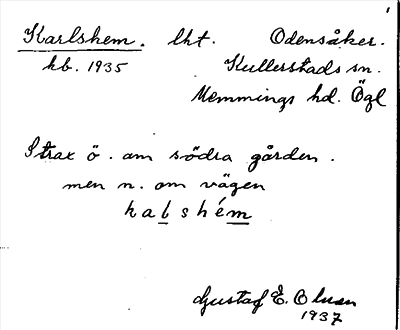 Karlshem. lht. Odensåker.
hb. 1935 Kullerstads sn.
Memmings hd. Ögl
Strax ö. om södra gården.
men n. om vägen
kalshém
Gustaf E. Olson
1937